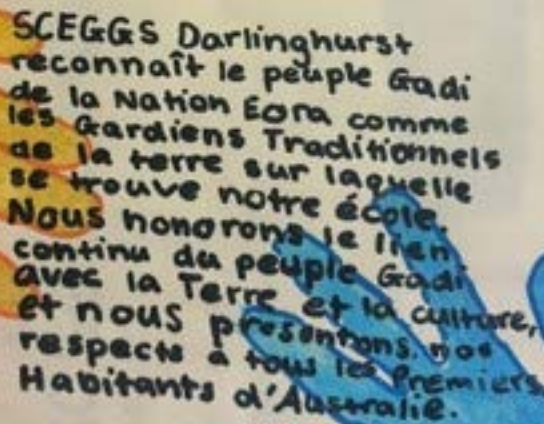 SCEGGS Darlinghurst
reconnaît le peuple Gadi
de la Nation Eora comme
les Gardiens Traditionnels
de la terre sur laquelle
se trouve notre école.
Nous honorons le lien
continu du peuple Gadi
avec la Terre et la culture,
et nous présentons nos
respects à tous les Premiers
Habitants d'Australie.